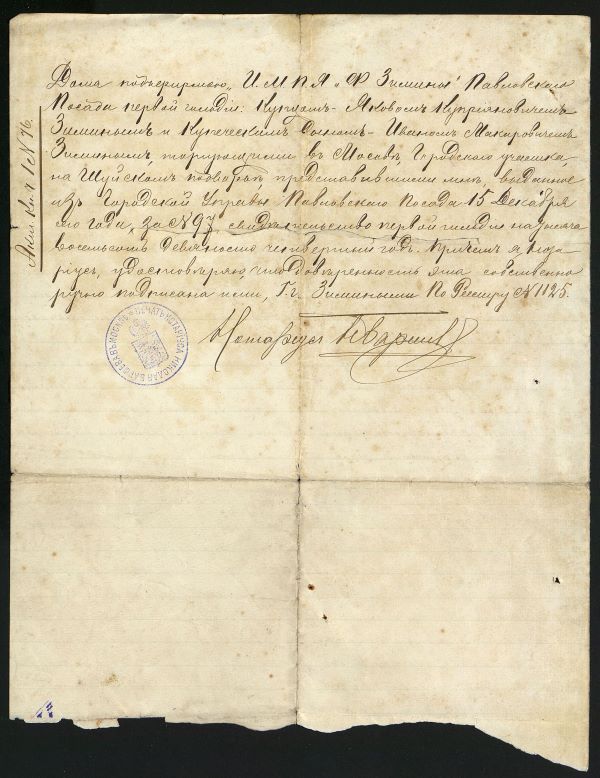 Дома подъ фирмою „И. М П Я и Ф Зимины" Павловскаго
Посада первой гильдіи: Купцомъ - Яковомъ Купріяновичемъ
Зиминымъ и Купеческимъ Сыномъ - Иваномъ Макаровичемъ
Зиминымъ, торгующими въ Москвѣ, Городскаго участка,
на Шуйскомъ подворьѣ, представившими мнѣ, выданное
изъ Городской Управы Павловскаго Посада 15 Декабря
сего года, за № 97, свидѣтельство первой гильдіи на тысяча
восемьсотъ девяносто четвертый годъ. Причемъ я нота
русъ, удостовѣряю что довѣренность эта собственно
ручно подписана ими, Г.г. Зимиными По Реестру № 1125.
Нотаріусъ
ПЕЧАТЬ НОТАРІУСА НИКОЛАЯ ВАРГЕВА ВЪ МОСКВѢ
№ 76.